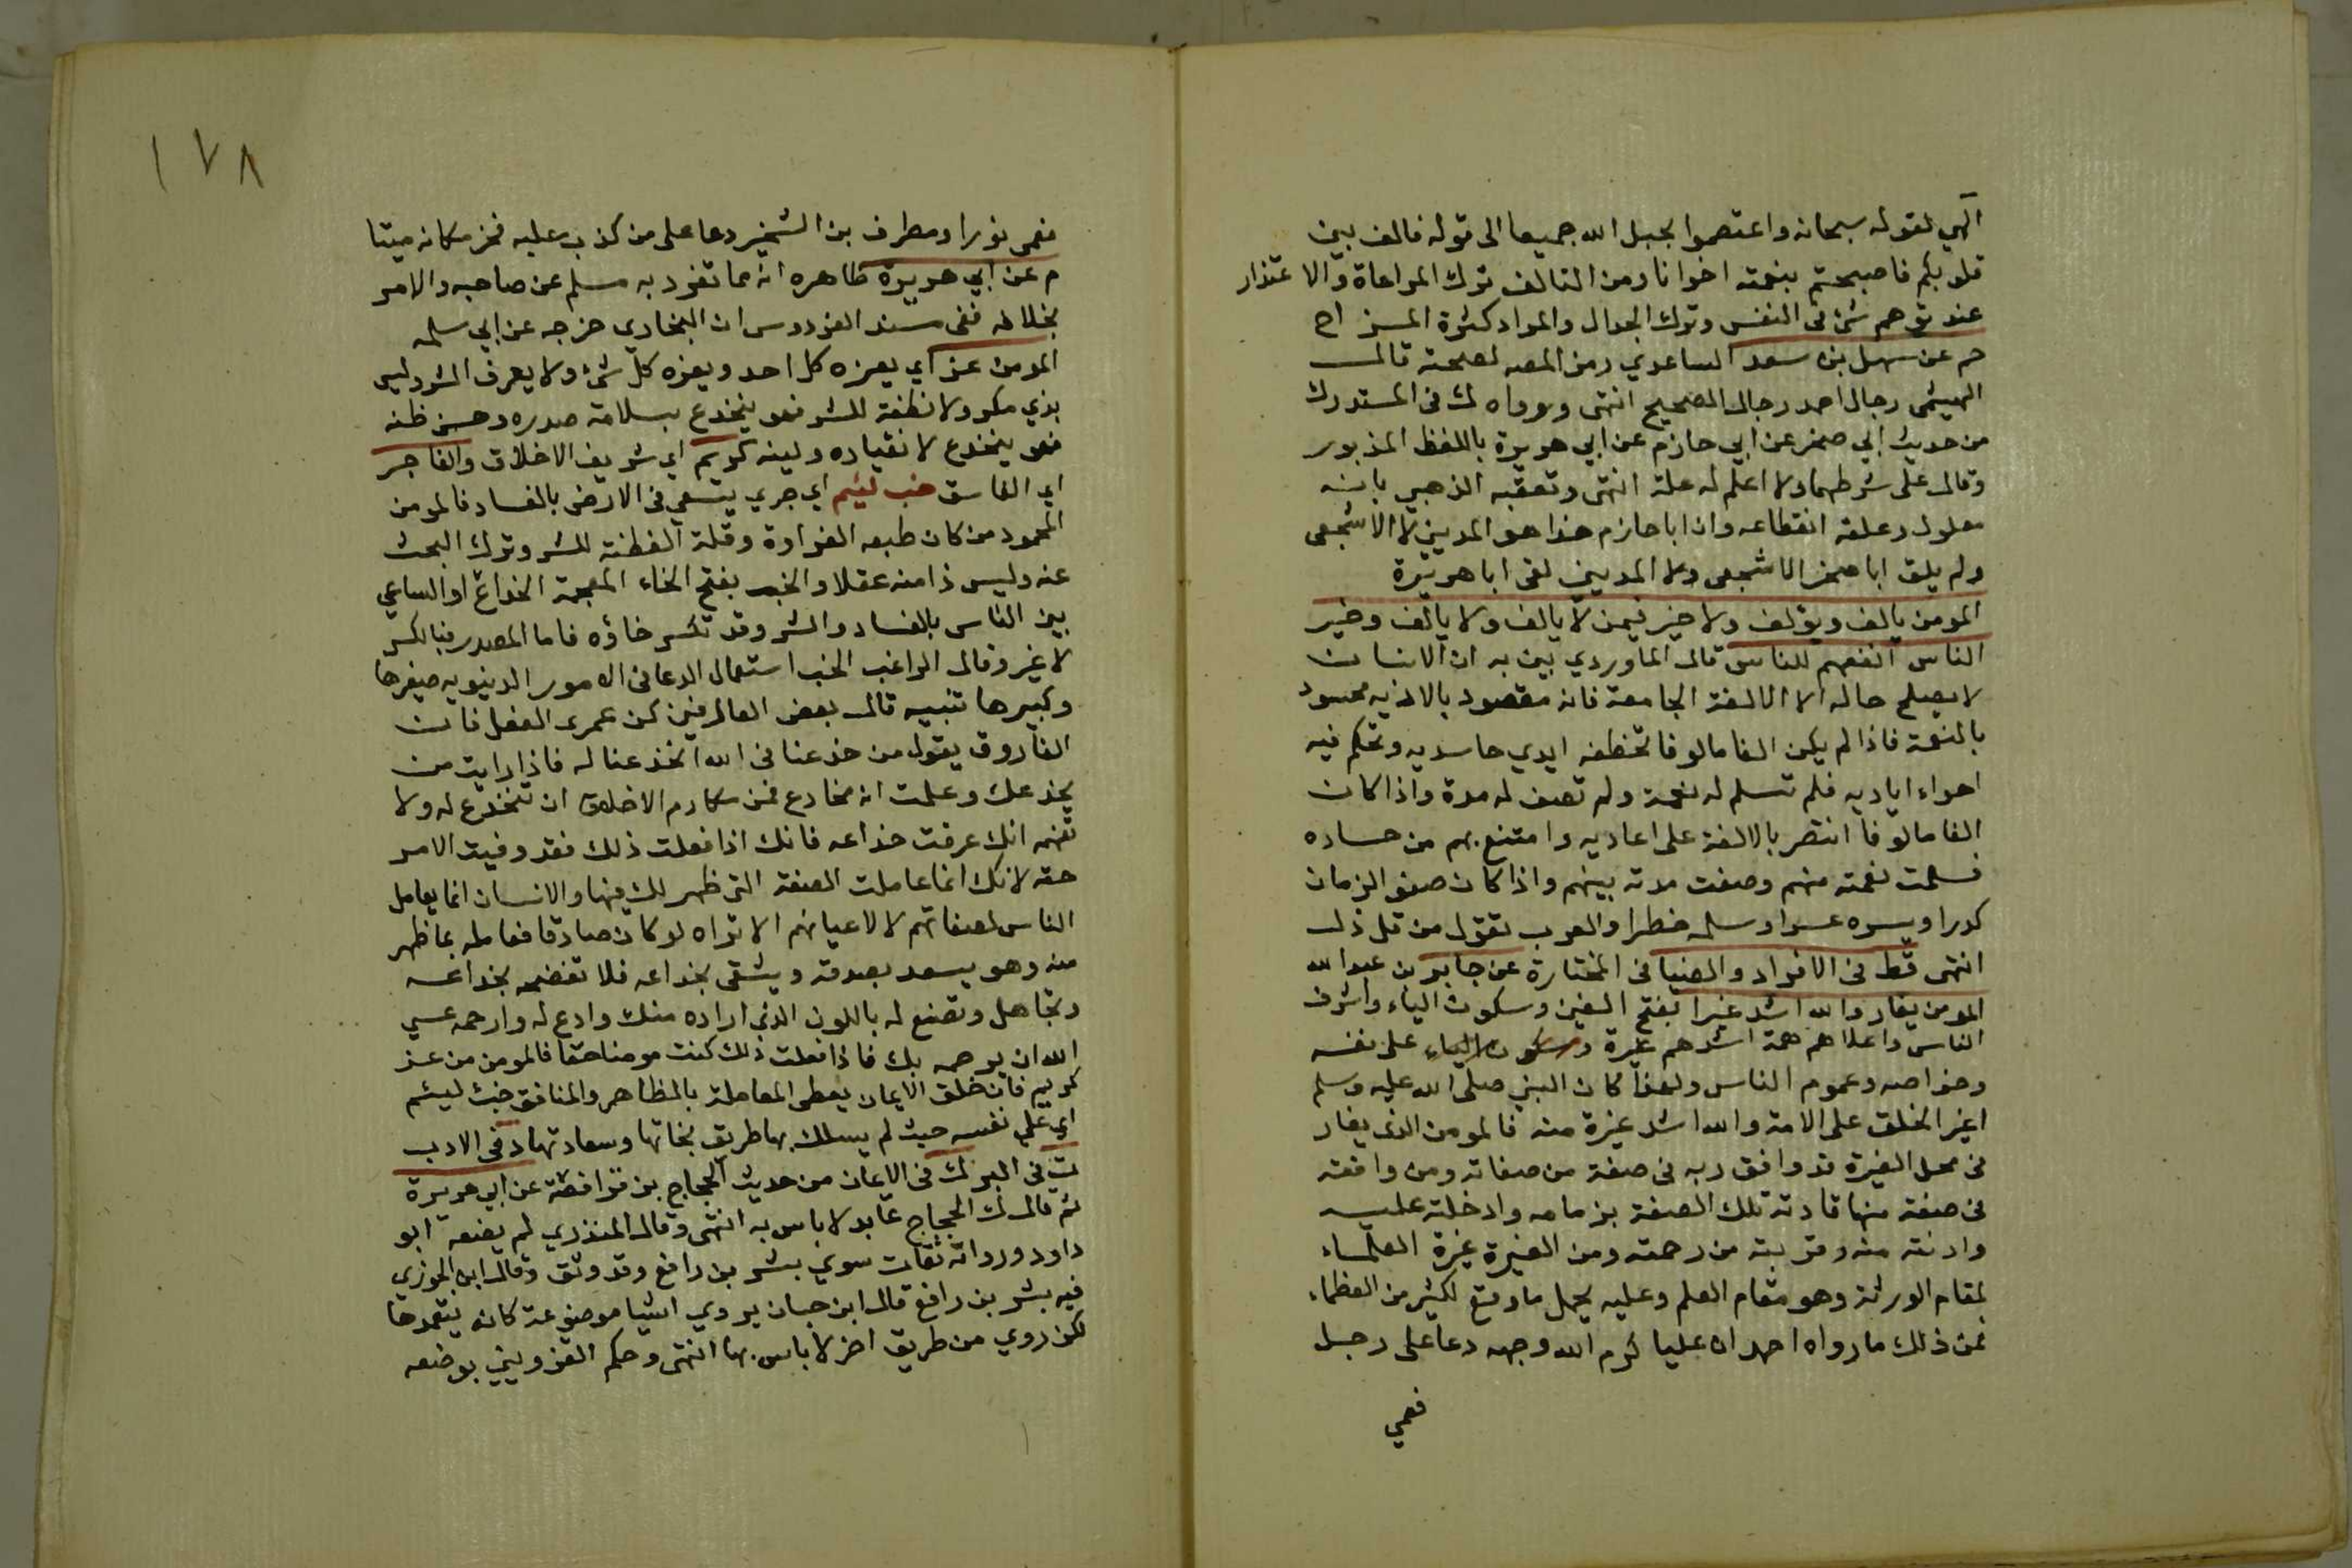 الهي لقوله سبحانه واعتصموا بحبل الله جميعا الى قوله فالف بين
قلوبكم فاصبحتم بنعمته اخوانا ومن التالف ترك المراعاة والاعتذار
عند توهم شئ في النفس وترك الجدال والمراد كثرة المزاح
حم عن سهل بن سعد الساعدي رمز المصه لصحته قال
الهيثمي رجال احمد رجال الصحيح انتهى ورواه ك في المستدرك
من حديث ابي صخر عن ابي حازم عن ابي هريرة باللفظ المذبور
وقال على شرطهما ولا اعلم له علة انتهى وتعقبه الذهبي بانه
معلول وعلته انقطاعه وان ابا حازم هذا هو المديني لا الاشجعي
ولم يلق ابا صخر الاشجعي ولا المديني لقى ابا هريرة
المومن يالف ويؤلف ولا خير فيمن لا يالف ولا يالف وخير
الناس انفعهم للناس قال الماوردي بين به ان الانسان
لا يصلح حاله الا الالفة الجامعة فانه مقصود بالاذيه محسود
بالنعمة فاذا لم يكن الفا مالوفا تخطفه ايدي حاسديه وتحكم فيه
اهواء اياديه فلم تسلم له نعمة ولم تصف له مدة واذا كان
الفا مالوفا انتصر بالالفة على اعاديه وامتنع بهم من حساده
فسلمت نعمته منهم وصفت مدته بينهم واذا كان صفو الزمان
كدرا ويسره عسرا وسلمه خطرا والعرب تقول من قل ذل
انتهى قط في الافراد والضيا في المختارة عن جابر بن عبد الله
المومن يغار والله اشد غيرا بفتح الغين وسكون الياء واشرف
الناس واعلاهم همة اشدهم غيرة وسكون الياء على نفسه
وخواصه وعموم الناس ولهذا كان النبي صلى الله عليه وسلم
اغير الخلق على الامة والله اشد غيرة منه فالمومن الذى يغار
في محل الغيرة قد وافق ربه في صفة من صفاته ومن وافقه
في صفة منها قادته تلك الصفة بزمامه وادخلته عليه
وادنته منه وقربته من رحمته ومن الغيرة غيرة العلماء
لمقام الورثة وهو مقام العلم وعليه يحمل ما وقع لكثير من العظماء
فمن ذلك ما رواه احمد ان عليا كرم الله وجهه دعا على رجل
فعمي
١٧٨
فعمى فورا ومطرف بن الشخير دعا على من كذب عليه فخر مكانه ميتا
م عن ابي هريرة ظاهره انه مما تفرد به مسلم عن صاحبه والامر
بخلافه ففى مسند الفردوس ان البخاري خرجه عن ابي سلمه
المومن عز اي يعزه كل احد ويعزه كل شئ ولا يعرف الشر وليس
بذي مكر ولا نظفة للشر فهو ينخدع بسلامة صدره وحسن ظنه
فهو ينخدع لانقياده ولينه كريم اي شريف الاخلاق والفاجر
اي الفاسق خب لئيم اي جري يسعي في الارض بالفساد فالمومن
المحمود من كان طبعه الغرارة وقلة الفطنة للشر وترك البحث
عنه وليس ذا منه عقلا والخب بفتح الخاء المعجمة الخداع او الساعي
بين الناس بالفساد والشر وقد تكسر خاؤه فاما المصدر فبالكسر
لا غير وقال الراغب الخب استعمال الدعا في الامور الدنيويه صغيرها
وكبيرها تنبيه قال بعض العارفين كن عمرى الفعل فان
الفاروق يقول من خدعنا في الله انخدعنا له فاذا رايت من
يخدعك وعلمت انه مخادع فمن مكارم الاخلاق ان تنخدع له ولا
تفهمه انك عرفت خداعه فانك اذا فعلت ذلك فقد وفيت الامر
حقه لانك انما عاملت الصفة التى ظهر لك فيها والانسان انما يعامل
الناس لصفاتهم لا لاعيانهم الا تراه لو كان صادقا فعامله بما ظهر
منه وهو يسعد بصدقه ويشقى بخداعه فلا تفضحه بخداعه
وتجاهل وتصنع له باللون الذى اراده منك وادع له وارحمه عسي
الله ان يرحمه بك فاذا فعلت ذلك كنت مومنا حقا فالمومن من عز
كريم فان خلق الايمان يعطى المعاملة بالظاهر والمنافق خب ليئم
اي على نفسه حيث لم يسلك بها طريق نجاتها وسعادتها د فى الادب
ت في البر ك في الايمان من حديث الحجاج بن فرافصة عن ابي هريرة
ثم قال ك الحجاج عابد لا باس به انتهى وقال المنذري لم يضعفه ابو
داود ورواته ثقات سوي بشر بن رافع وقد وثق وقال ابن الجوزي
فيه بشر بن رافع قال ابن حبان يروي اشيا موضوعة كانه يتعمدها
لكن روي من طريق اخر لا باس بها انتهى وحكم القزويني بوضعه